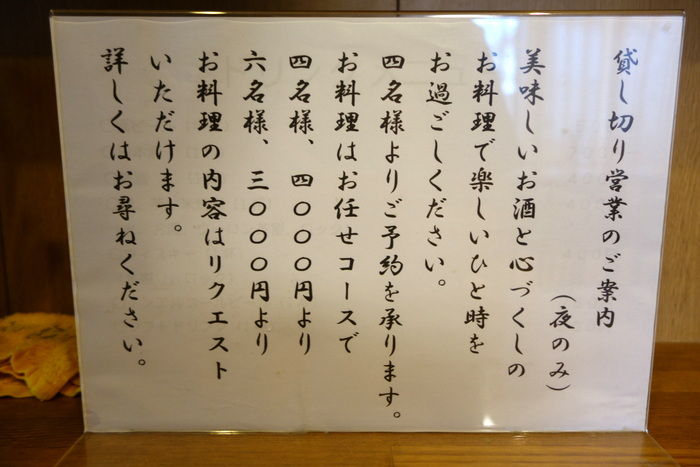 貸し切り営業のご案内
（夜のみ）
美味しいお酒と心づくしの
お料理で楽しいひと時を
お過ごしください。
四名様よりご予約を承ります。
お料理はお任せコースで
四名様、四〇〇〇円より
六名様、三〇〇〇円より
お料理の内容はリクエスト
いただけます。
詳しくはお尋ねください。